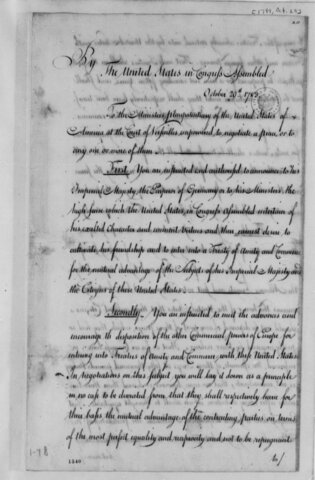 [1783, Oct. 29]
By
The United States in Congress Assembled
October 29th 1783
To the Ministers plenipotentiary of the United States of
America at the Court of Versailles empowered to negotiate a peace, or to
any one or more of them
First. You are instructed and authorised to announce to his
Imperial Majesty, the Emperor of Germany or to his Ministers, the
high sense which the United States in Congress Assembled entertain of
his exalted Character and eminent Virtues and their earnest desire to
cultivate his friendship and to enter into a Treaty of Amity and Commerce
for the mutual advantage of the Subjects of his Imperial Majesty and
the Citizens of these United States
Secondly. You are instructed to meet the advances and
encourage the disposition of the other Commercial powers of Europe for
entering into Treaties of Amity and Commerce with these United States
In negotiations on this subject you will lay it down as a principle
in no case to be deviated from that they shall respectively have for
their basis the mutual advantage of the contracting parties on terms
of the most perfect equality and reciprocity and not to be repugnant
to/
1-78
1340